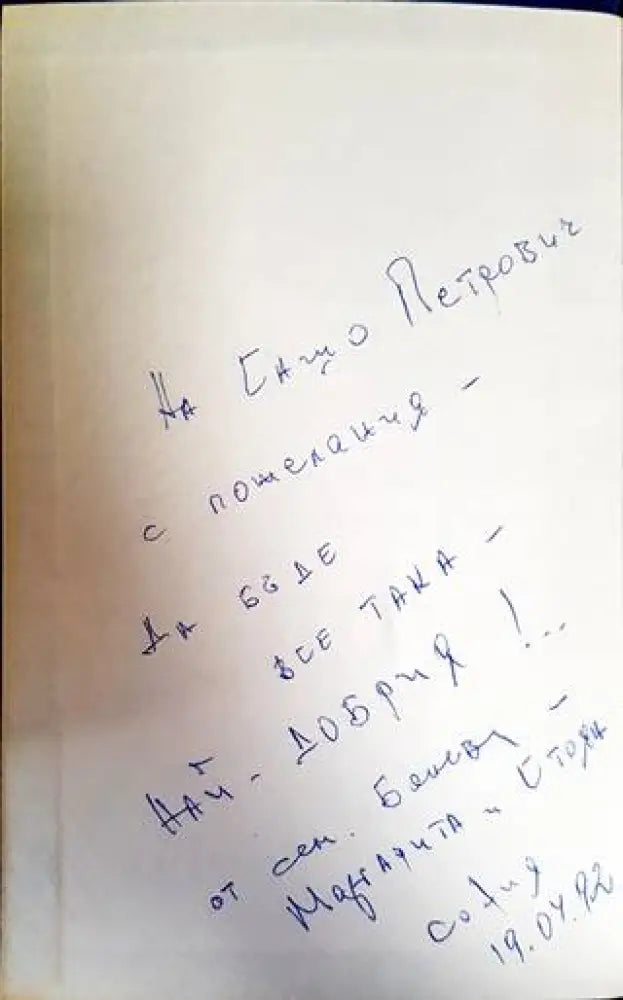 На Сашо Петрович
с пожелания -
Да бъде
все така -
най - добрия !...
от сем.
Маргарита и Стоян
София
19.04.92